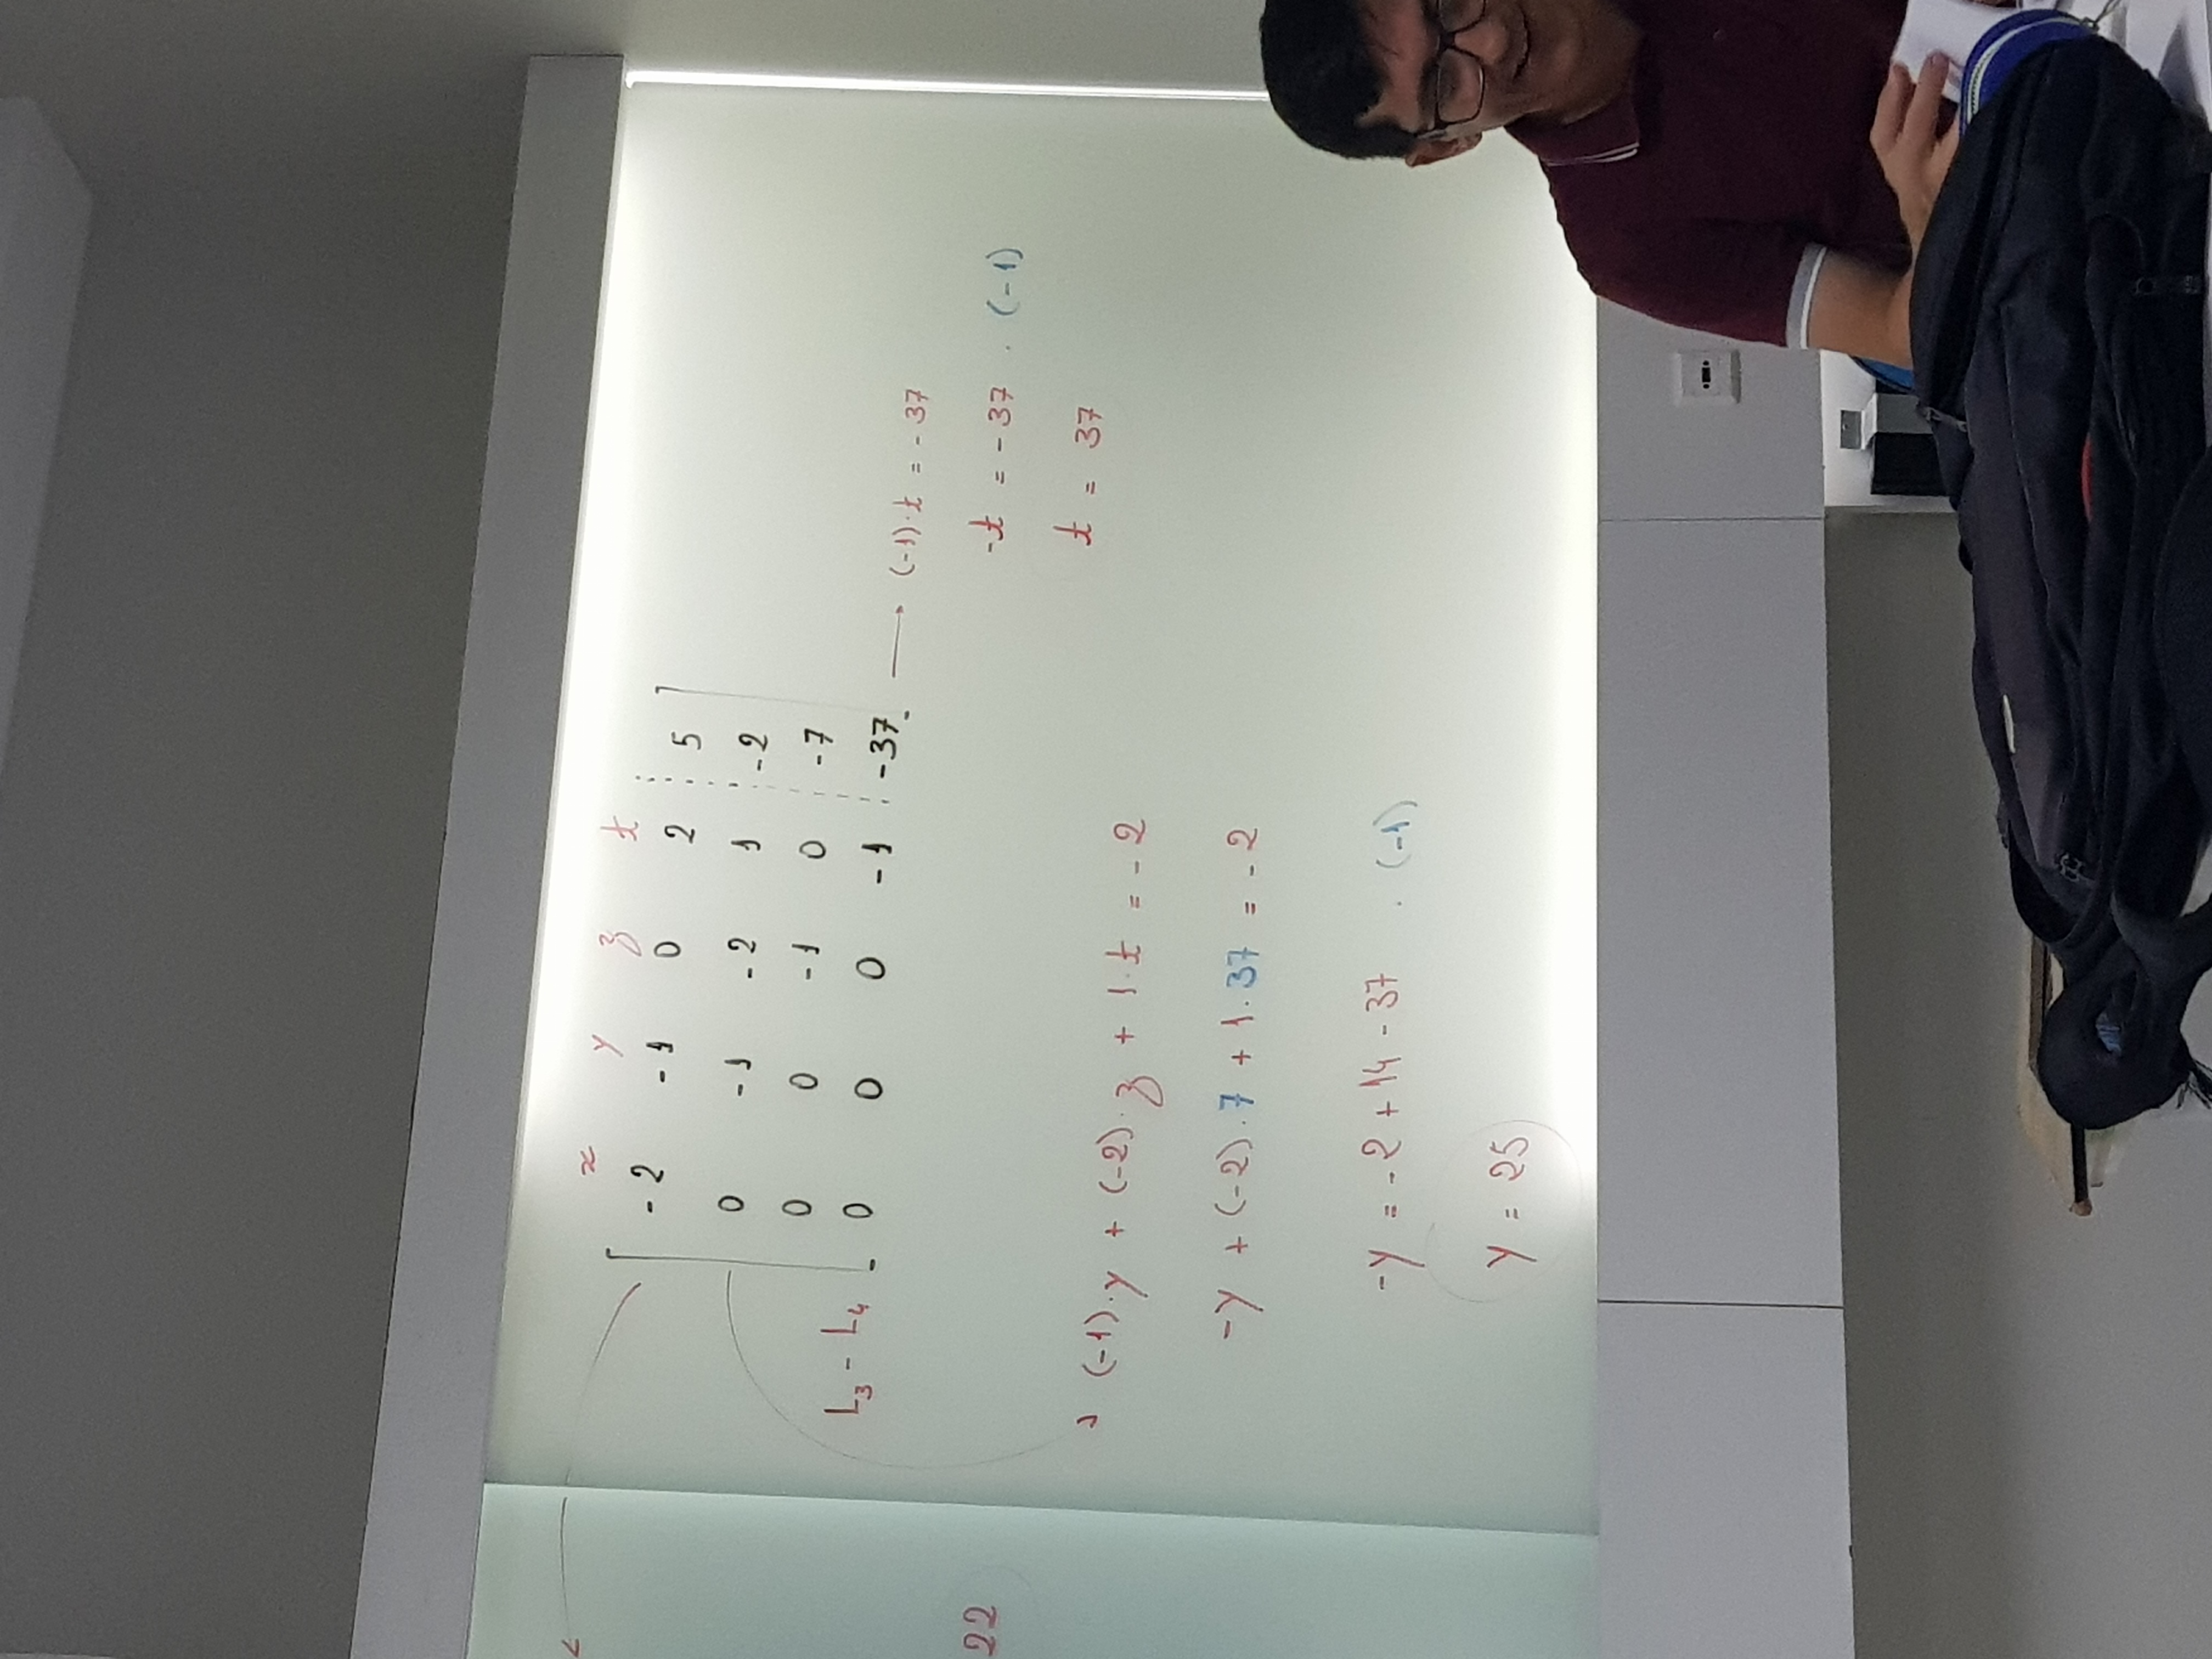 x y z t
-2 -1 0 2 5
0 -1 -2 1 -2
0 0 -1 0 -7
L₃ - L₄ 0 0 0 -1 -37 → (-1)·t = -37
22
-t = -37 · (-1)
t = 37
(-1)·y + (-2)·z + 1·t = -2
-y + (-2)·7 + 1·37 = -2
-y = -2 + 14 - 37 · (-1)
y = 25